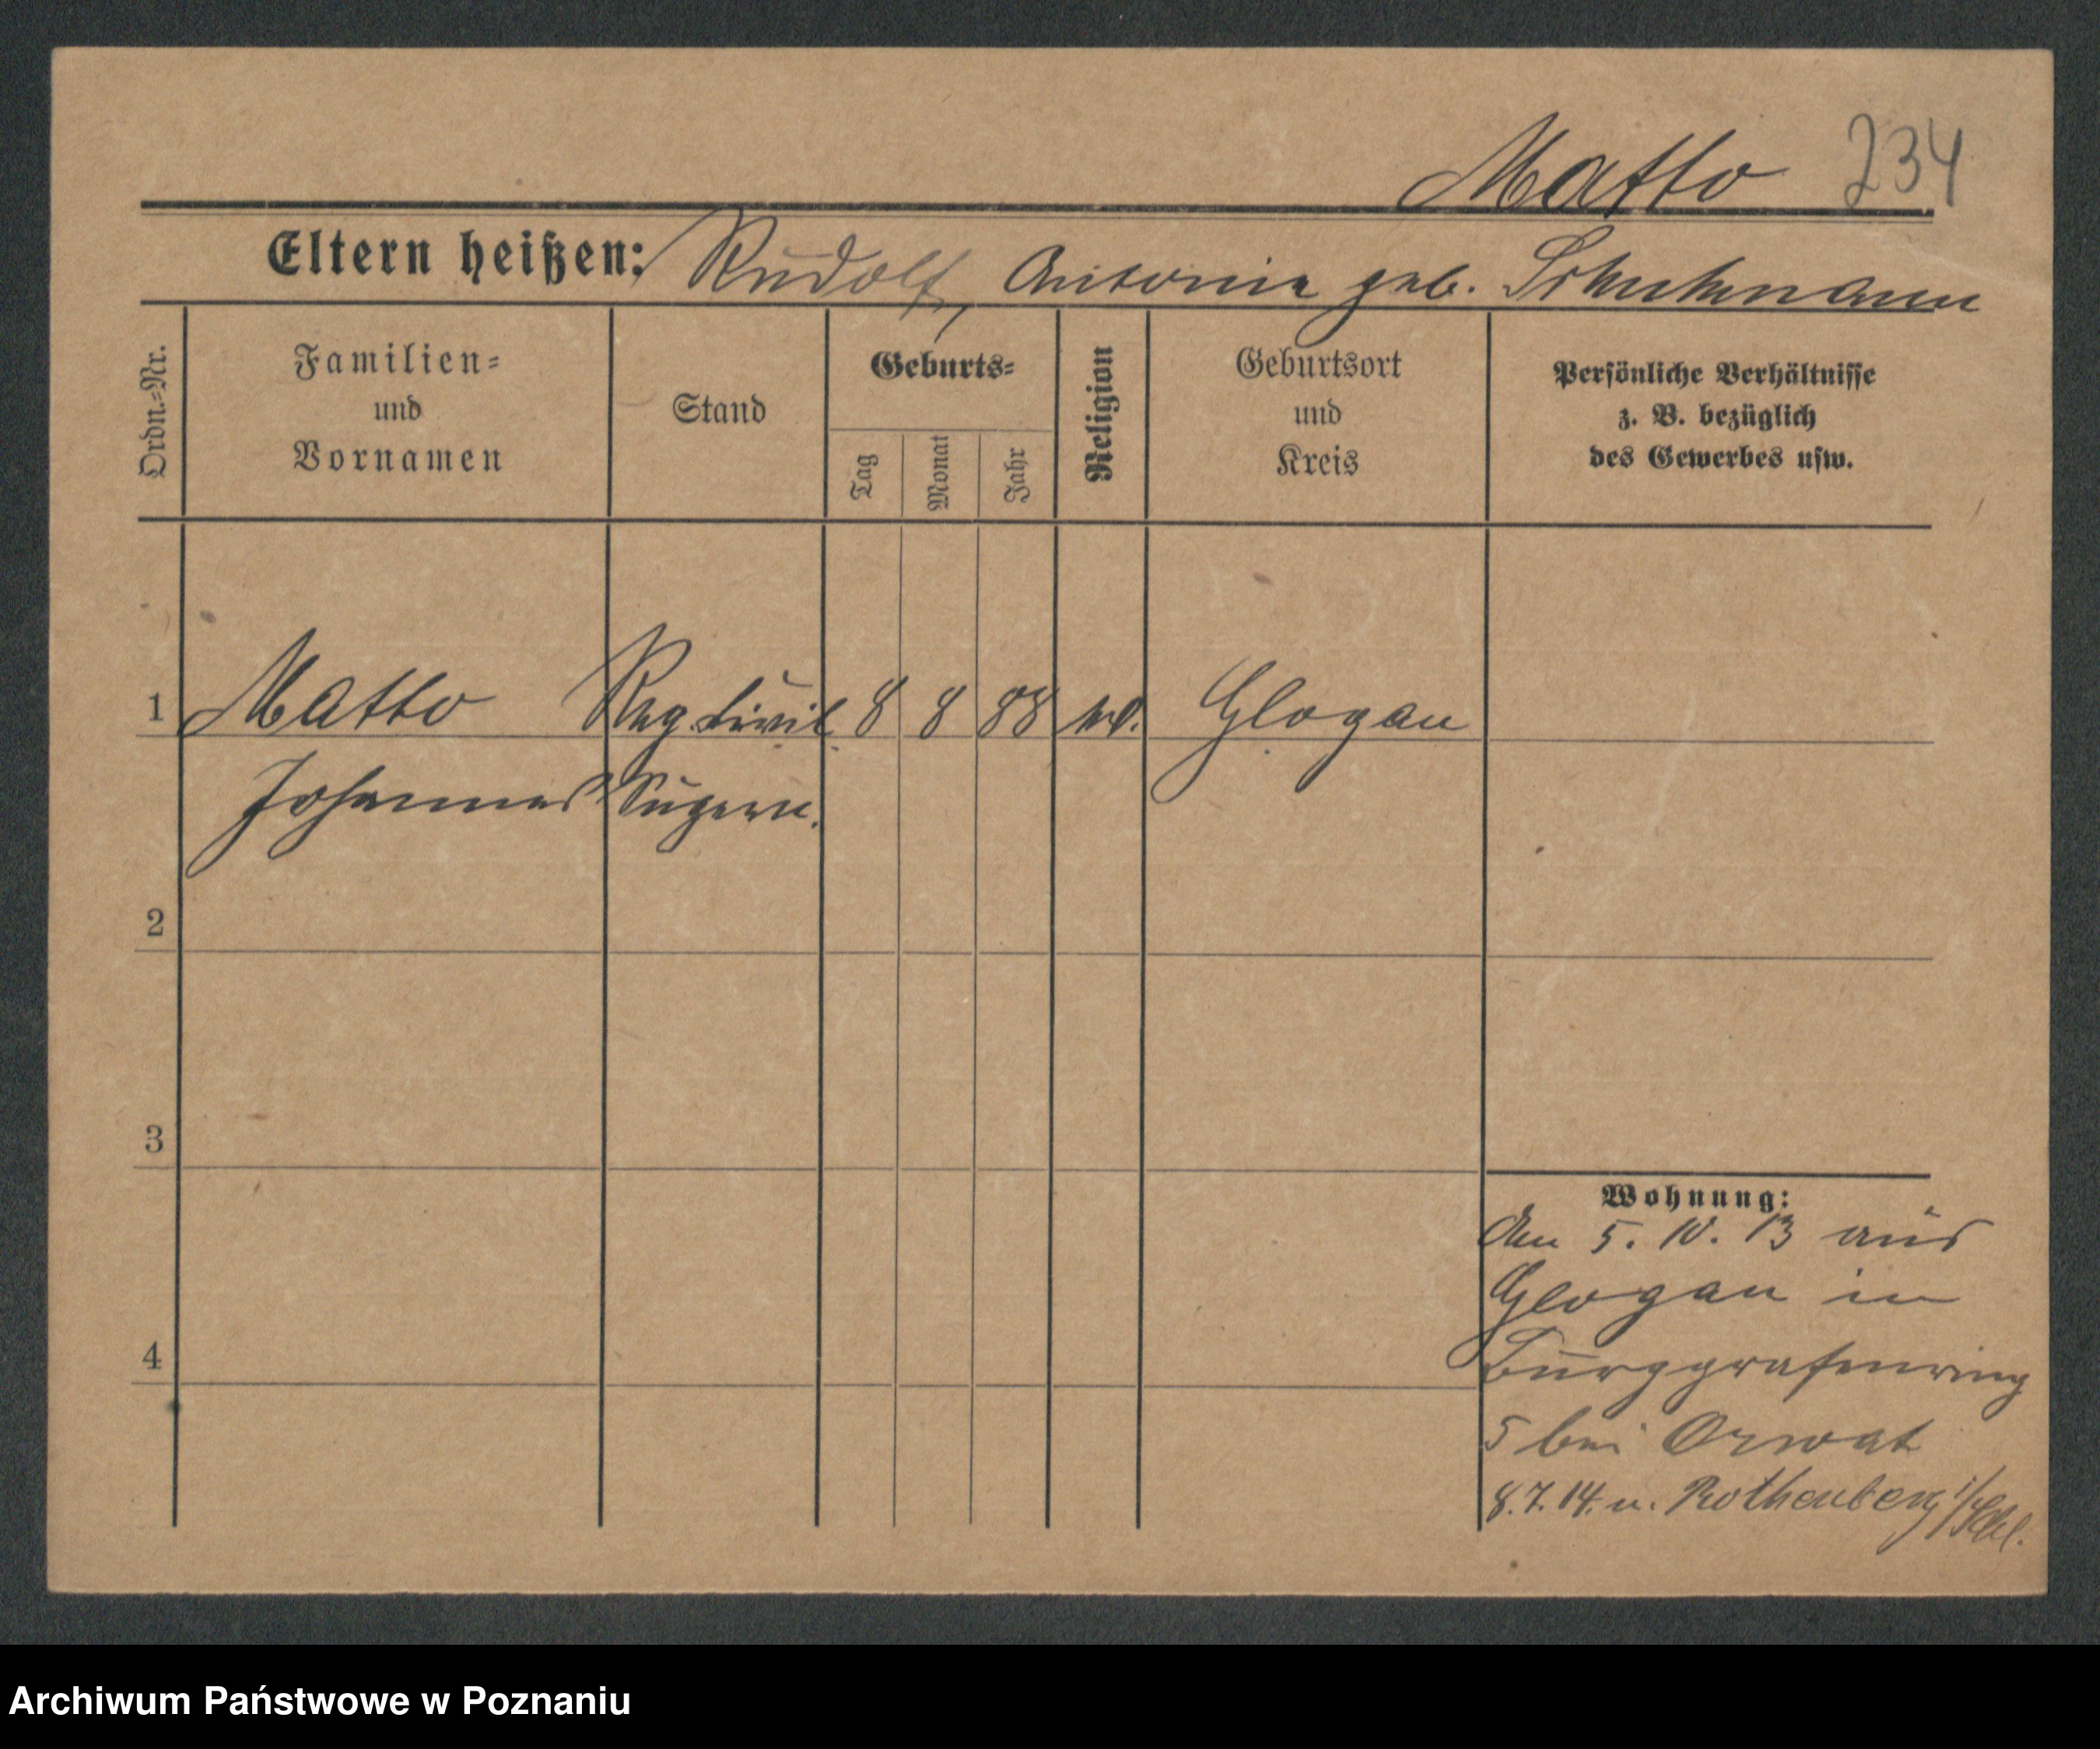 Matto 234
Eltern heißen: Rudolf, Antonie geb. Schuhmann
Ordn.=Nr.
Familien=
und
Vornamen
Stand
Geburts=
Tag
Monat
Jahr
Religion
Geburtsort
und
Kreis
Persönliche Verhältnisse
z. B. bezüglich
des Gewerbes usw.
1 Matto Reg. Zivil 8 8 88 Glogau
Johannes Supern.
2
3
4
Wohnung:
Am 5. 10. 13 aus
Glogau in
Burggrafenring
5 bei Orwat
8.7.14. n. Rothenberg i/Schl.
Archiwum Państwowe w Poznaniu